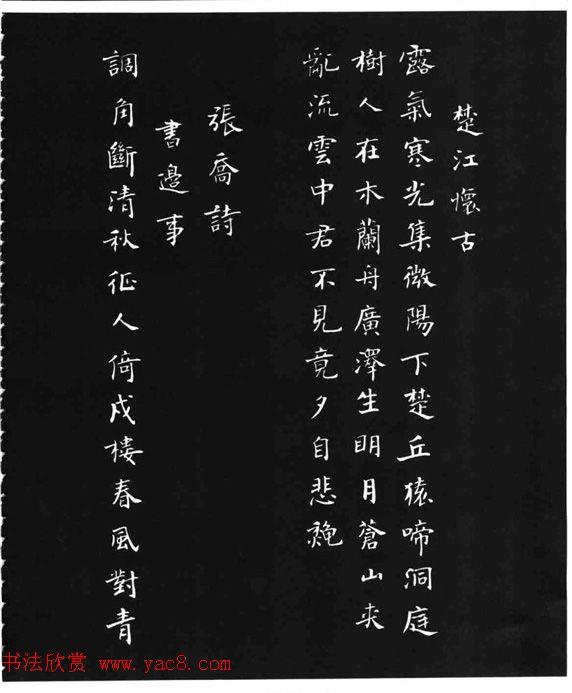 楚江懷古
露氣寒光集微陽下楚丘猿啼洞庭
樹人在木蘭舟廣澤生明月蒼山夾
亂流雲中君不見竟夕自悲穐
張喬詩
書邊事
調角斷清秋征人倚戍樓春風對青
书法欣赏 www.yac8.com